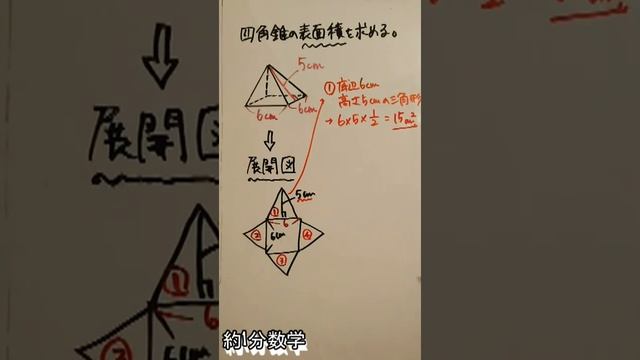 四角錐の表面積を求める。
5cm
6cm
6cm
① 底辺6cm
高さ5cmの三角形
→ 6×5×1/2 = 15cm²
展開図
5cm
①
6
6cm
②
④
③
約1分数学